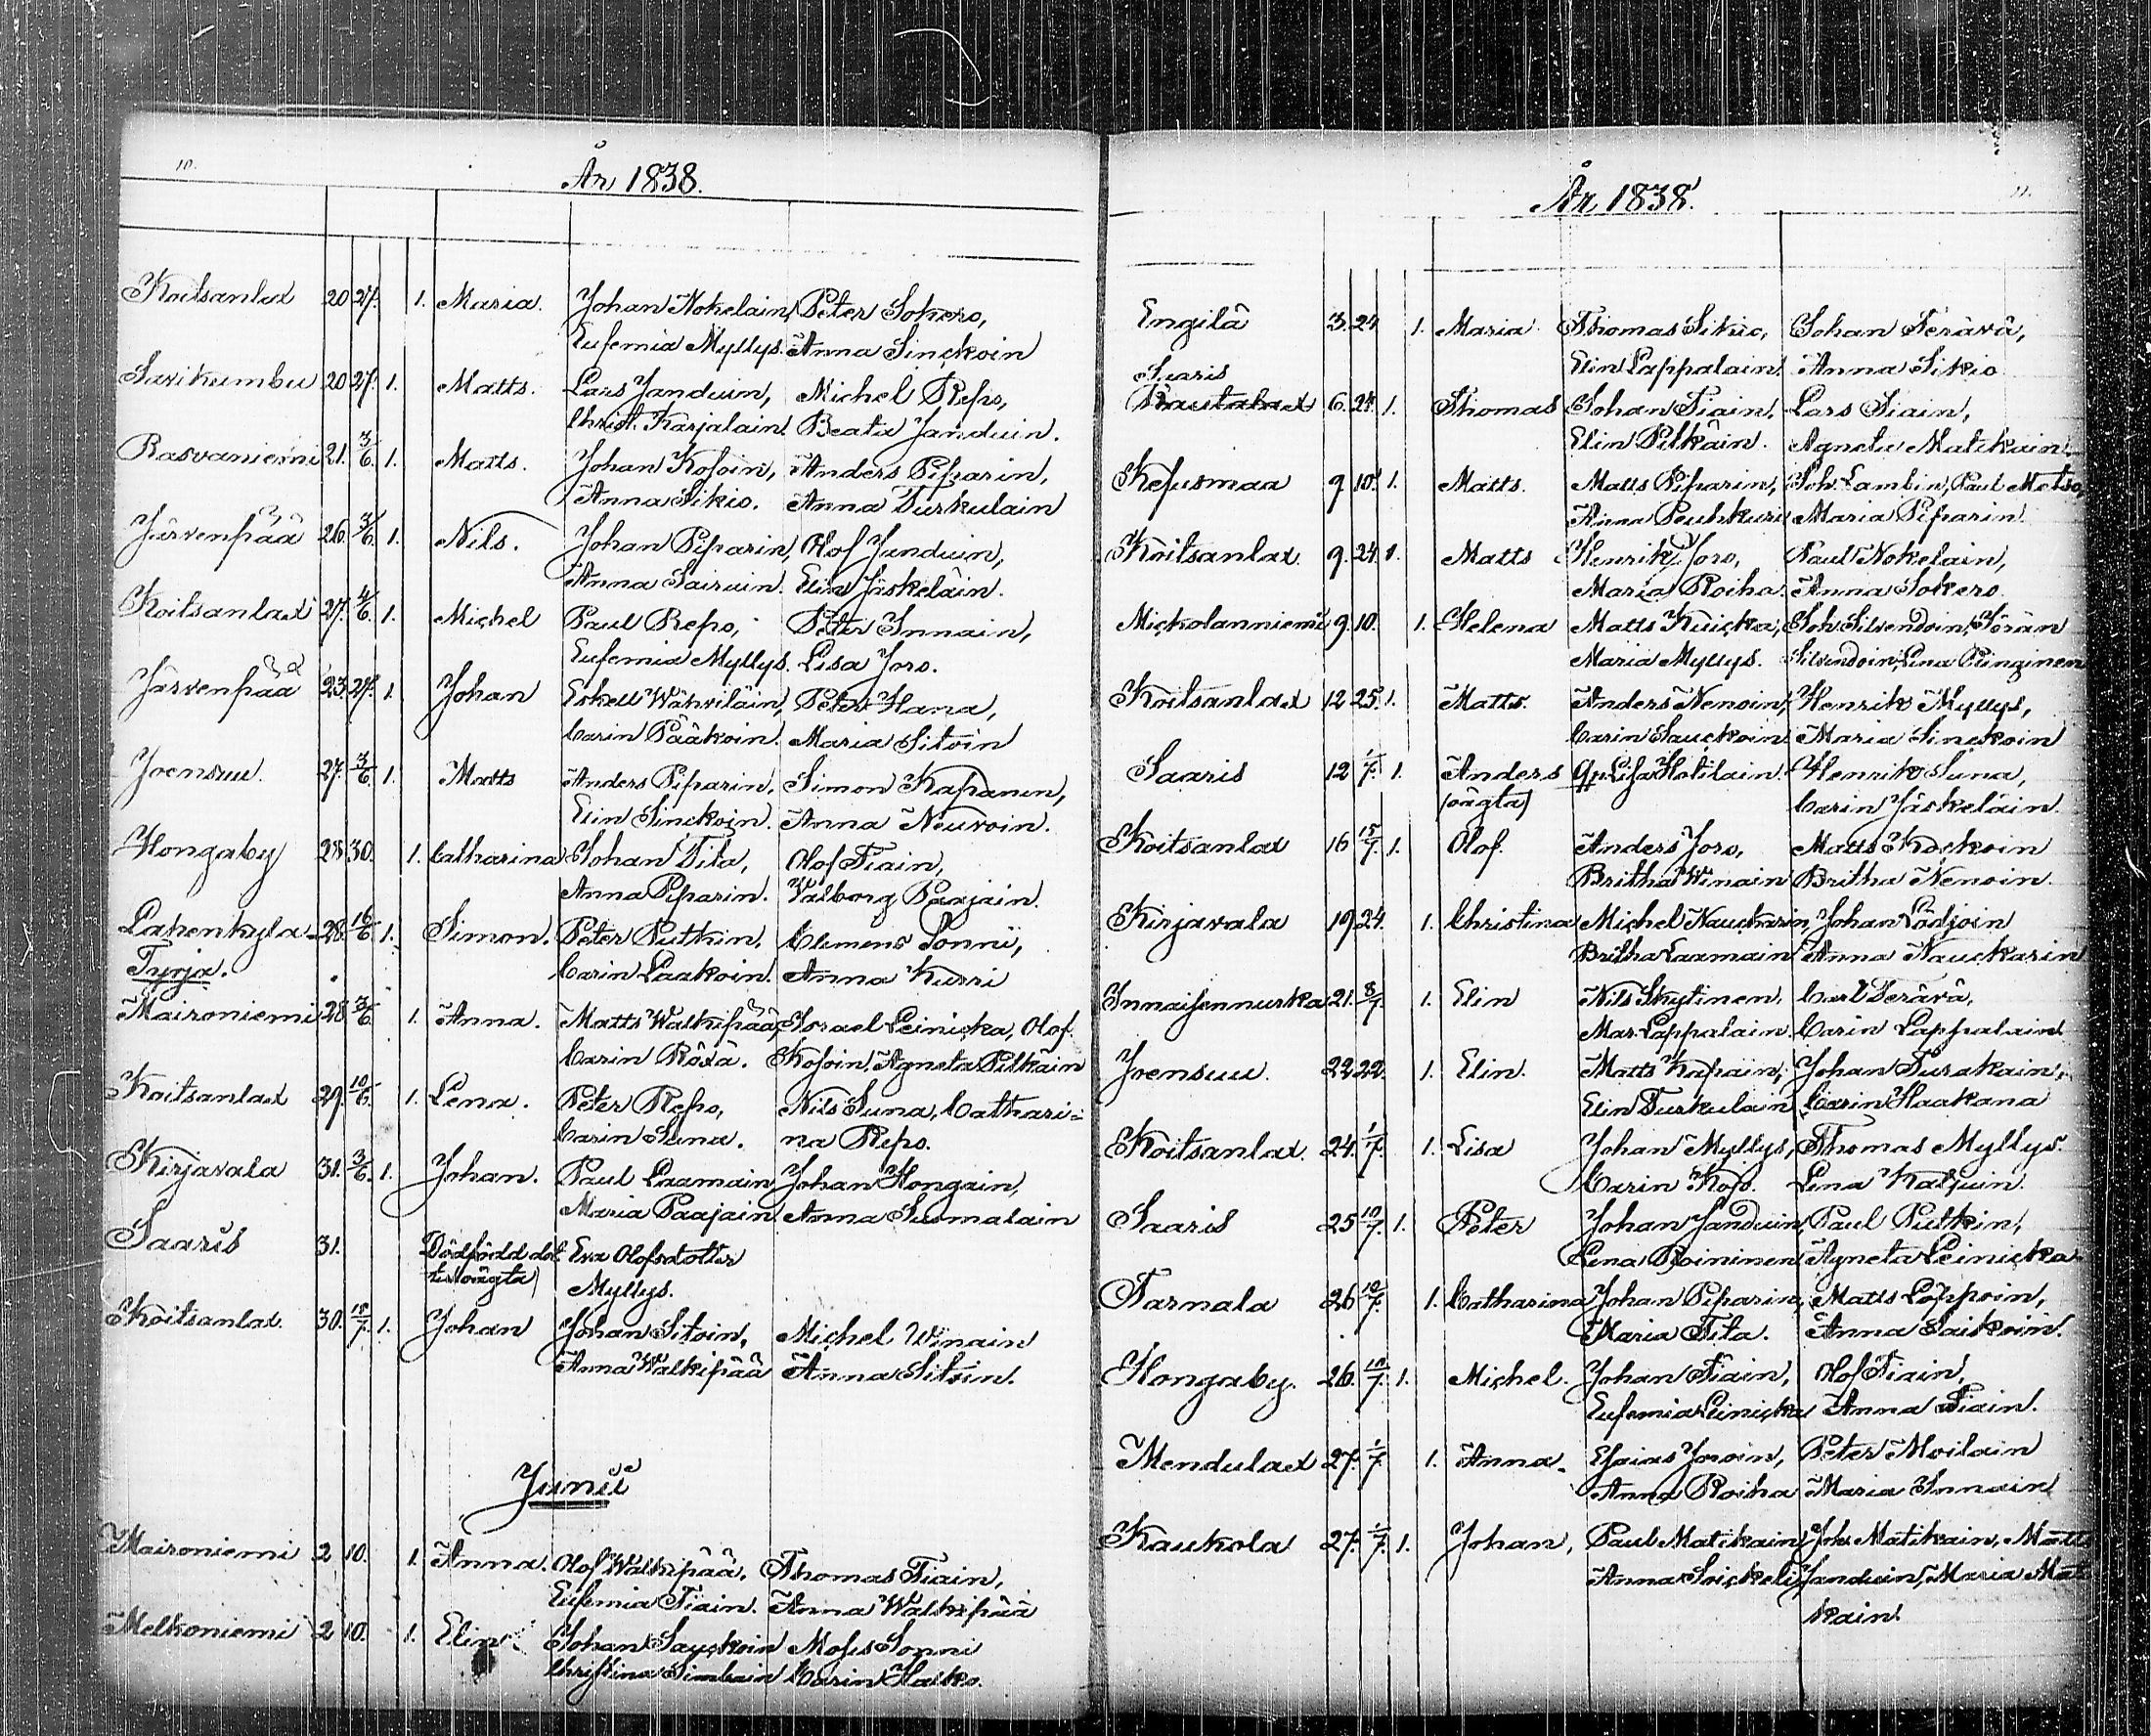 10.
År 1838.
Koitsanlax 20 27. 1. Maria. Johan Nokelain, Peter Sokero,
Eufemia Myllys. Anna Sinckoin
Sarikumbu 20 27. 1. Matts. Lars Janduin, Michel Repo,
Christ. Karjalain. Beata Janduin.
Rasvaniemi 21. 3/6. 1. Matts. Johan Kosoin, Anders Piparin,
Anna Sikio. Anna Turkulain
Järvenpää 26. 3/6. 1. Nils. Johan Piparin, Olof Janduin,
Anna Sairain. Elin Jäskeläin.
Koitsanlax 27. 4/6. 1. Michel Paul Repo, Peter Innain,
Eufemia Myllys. Lisa Joro.
Järvenpää 23. 27. 1. Johan Eskell Wähviläin, Peter Hana,
Carin Pääkoin. Maria Sitoin
Joensuu. 27. 3/6. 1. Matts Anders Piparin, Simon Kapanen,
Elin Sinckoin. Anna Neuvoin.
Hongaby 28 30. 1. Catharina Johan Tita, Olof Tiain,
Anna Piparin. Valborg Paajain.
Lahenkyla 28. 16/6 1. Simon. Peter Putkin, Clemens Sonni,
Tyrja. Carin Laakoin. Anna Kurri
Maironiemi 28 3/6. 1. Anna. Matts Walkipää, Israel Leinicka, Olof
Carin Röxä. Kosoin, Agneta Pitkäin
Koitsanlax 29. 10/6. 1. Lena. Peter Repo, Nils Suna, Cathari=
Carin Suna. na Repo.
Kirjavala 31. 3/6. 1. Johan. Paul Laamain Johan Hongain,
Maria Paajain. Anna Suomalain
Saaris 31. Dödfödd dot Eva Olofsdotter
ter oägta) Myllys.
Koitsanlax. 30. 15/7. 1. Johan Johan Sitoin, Michel Winain
Anna Walkipää Anna Sitoin.
Junii
Maironiemi 2 10. 1. Anna. Olof Walkipää, Thomas Tiain,
Eufemia Tiain. Anna Walkipää
Melkoniemi 2 10. 1. Elin Johan Sauckoin Moses Sonni
Christina Simbain Carin Hasko.
11.
År 1838.
Engilä 3. 24 1. Maria Thomas Sikio, Johan Terävä,
Elin Lappalain. Anna Sikio
Suaris
Rautalax 6. 24. 1. Thomas Johan Tiain, Lars Tiain,
Elin Pitkäin. Agneta Matikain.
Kesusmaa 9 10. 1. Matts. Matts Piparin, Joh. Lambin, Paul Metso,
Anna Peuhkuri Maria Piparin.
Koitsanlax. 9. 24. 1. Matts Henrik Joro, Paul Nokelain,
Maria Roiha. Anna Sokero.
Mickolanniemi 9. 10. 1. Helena Matts Kuicka, Joh. Silvendoin, Göran
Maria Myllys. Silvendoin, Lena Punginen
Koitsanlax 12 25. 1. Matts. Anders Nenoin, Henrik Myllys,
Carin Sauckoin. Maria Sinckoin
Saaris 12 1/7. 1. Anders Qp. Lisa Hotilain. Henrik Suna,
(oägta) Carin Jäskeläin.
Koitsanlax 16 15/7. 1. Olof. Anders Joro, Matts Kockoin
Britha Winain Britha Nenoin.
Kirjavala 19 24. 1. Christina Michel Nauckarin, Johan Lödjoin
Britha Laamain Anna Nauckarin
Innaisennurka 21. 8/7. 1. Elin Nils Skytinen, Carl Terävä,
Mar. Lappalain. Carin Lappalain
Joensuu. 22 22. 1. Elin. Matts Kapain, Johan Surakain,
Elin Turkulain. Carin Haakana
Koitsanlax. 24. 1/7. 1. Lisa Johan Myllys, Thomas Myllys.
Carin Lena
Saaris 25 10/7. 1. Peter Johan Janduin, Paul Putkin,
Lena Roininen Agneta Leinicka
Tarnala 26 10/7. 1. Catharina Johan Piparin, Matts Loppoin,
Maria Tita. Anna Saikoin.
Hongaby. 26. 10/7. 1. Michel. Johan Tiain, Olof Tiain,
Eufemia Leinicka Anna Tiain.
Mendulax 27. 1/7 1. Anna. Esaias Joroin, Peter Moilain
Anna Roiha Maria Innain
Kaukola 27. 1/7. 1. Johan, Paul Matikain, Joh. Matikain, Matts
Anna Soickeli Janduin, Maria Mati
kain.